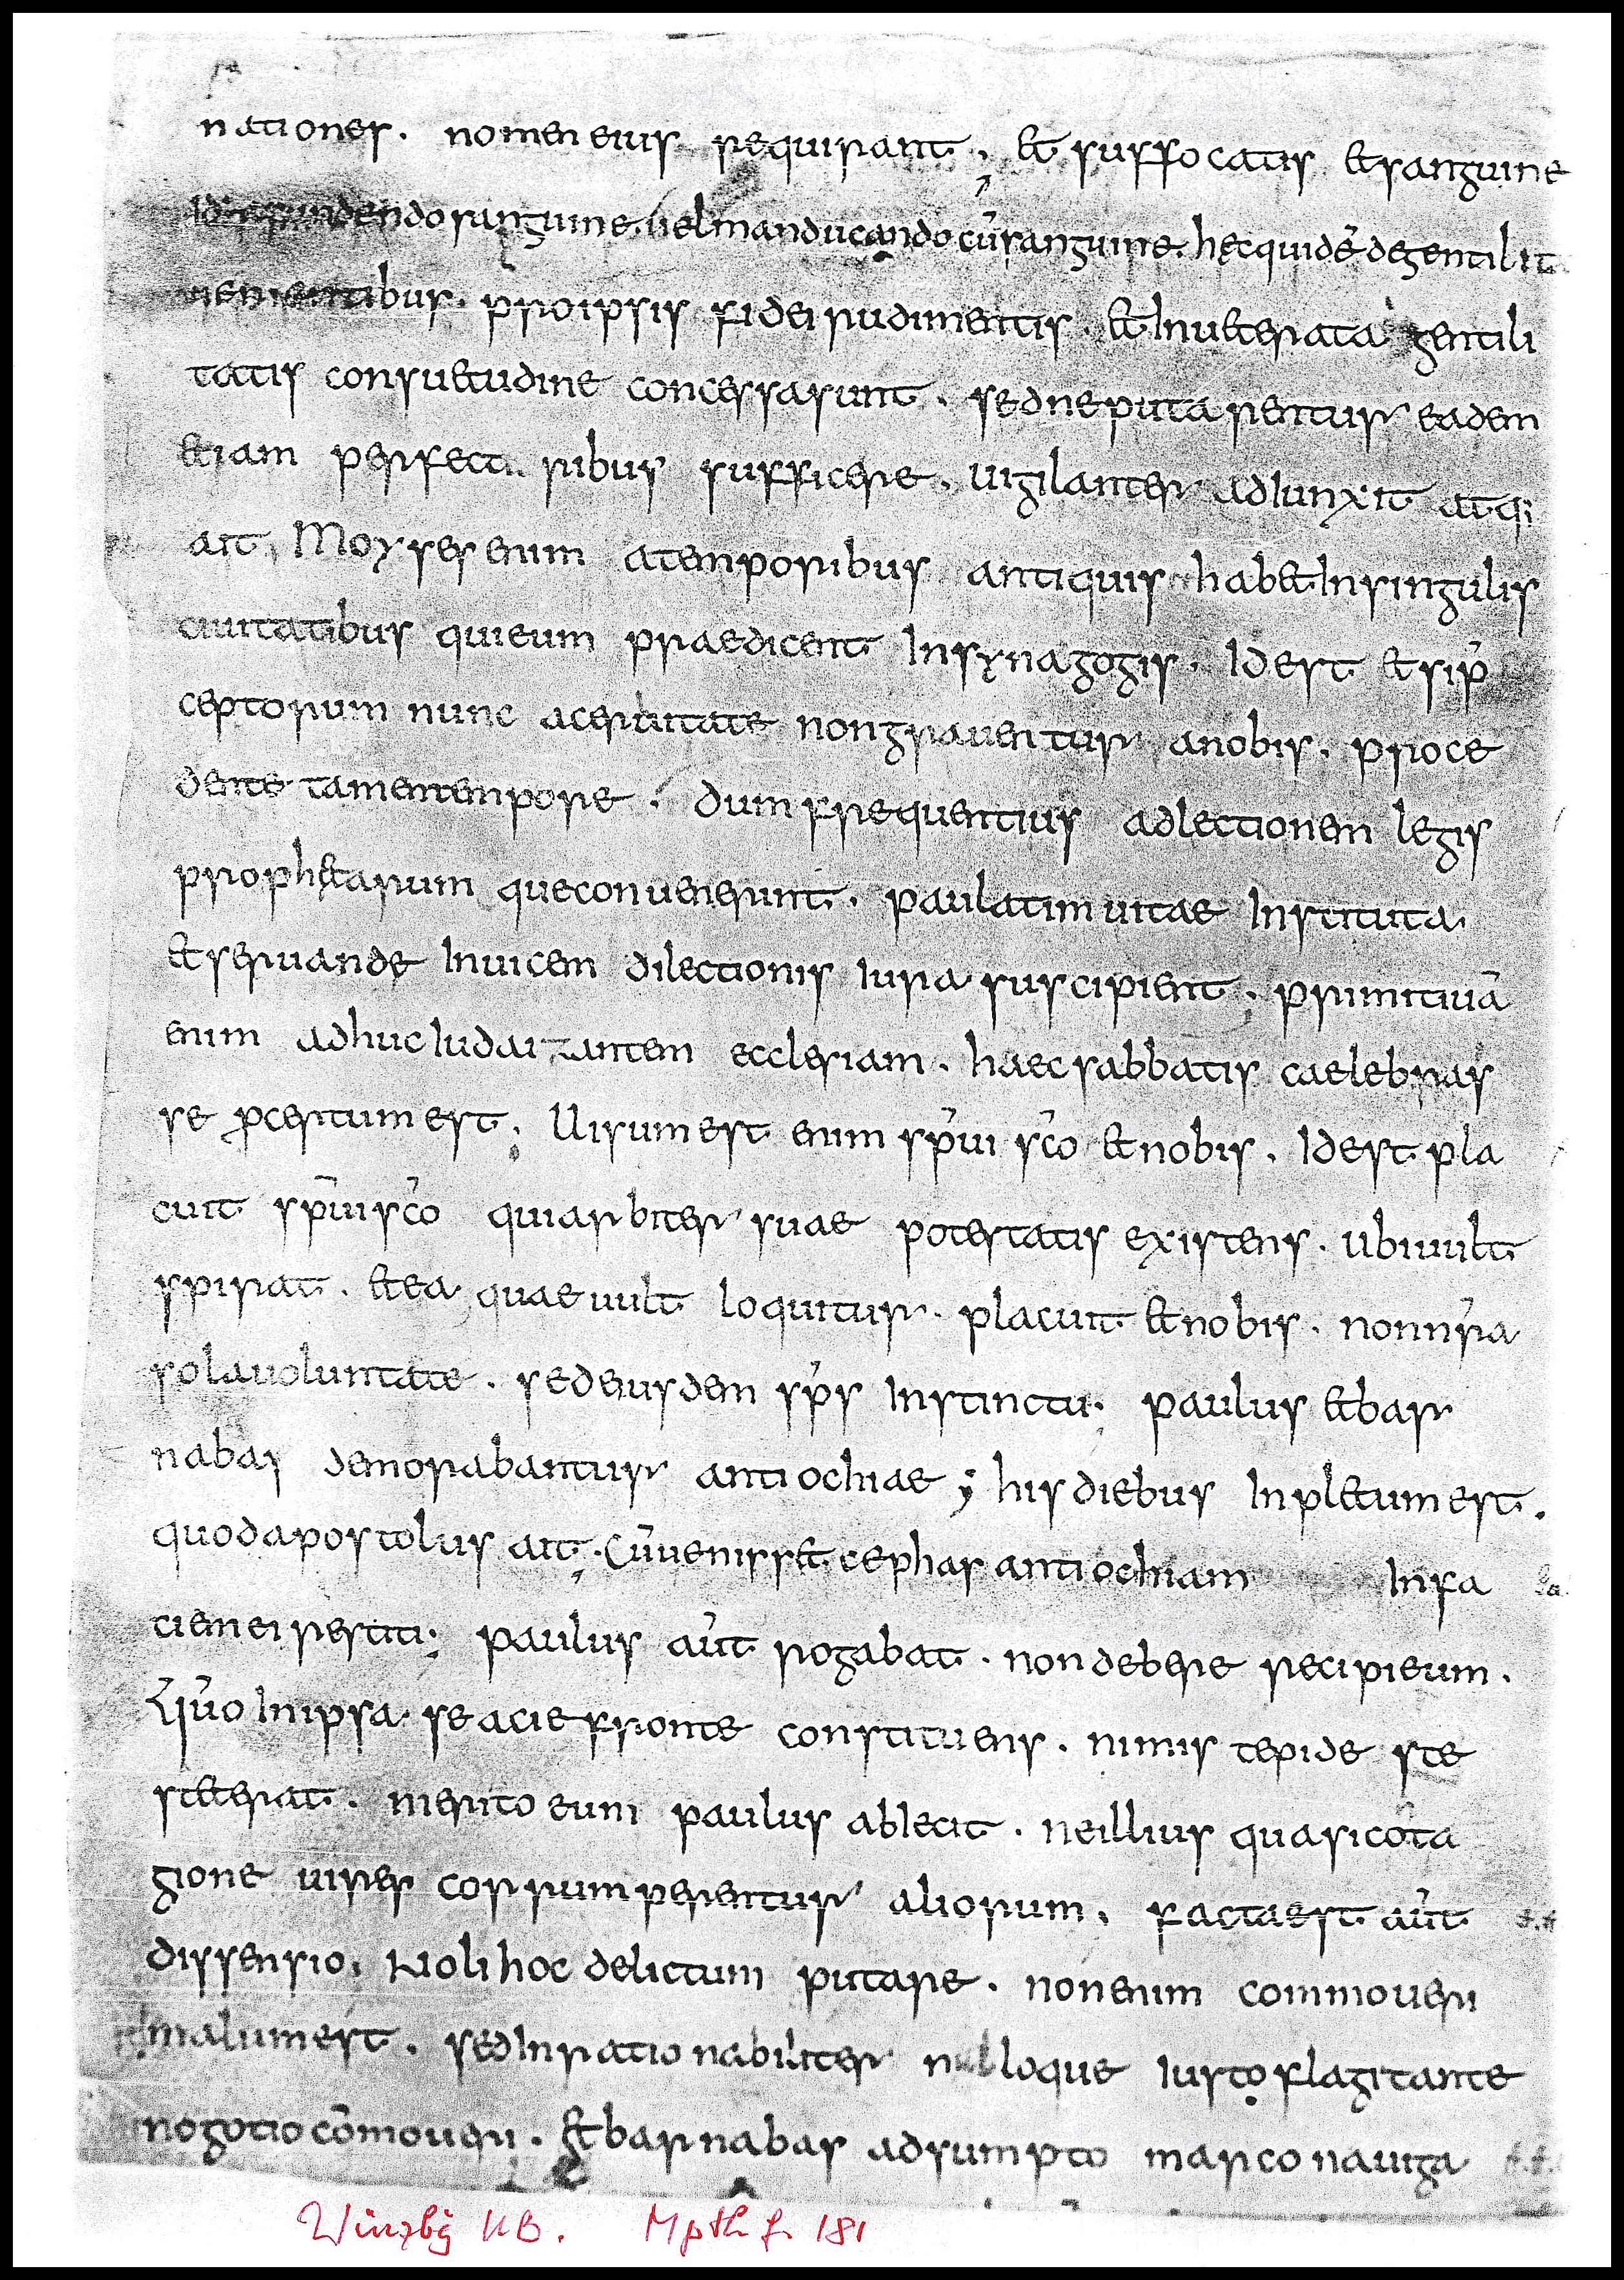 nationes. nomen eius requirant, et suffocatis et sanguine
dendo sanguine. uel manducando cū sanguine. hęc quidē de gentilit
uenientibus. pro ipsis fidei rudimentis. et Inueterata gentili
tatis consuetudine concessa sunt. sed ne putarentur eadem
etiam perfecti ribus sufficere. uigilanter adIunxit atq;
ait, Moyses enim a temporibus antiquis habet In singulis
ciuitatibus qui eum praedicent In synagogis. Idest et si p̄
ceptorum nunc acerbitate non grauentur a nobis. proce
dente tamen tempore. dum frequentius ad lectionem legis
prophetarum que conuenerunt. paulatim uitae Instituta
et seruande Inuicem dilectionis Iura suscipient; primitiuā
enim adhuc Iudaizantem ecclesiam. haec sabbatis caelebras
se p̄certum est; Uisum est enim sp̄ui sc̄o et nobis. Idest pla
cuit sp̄ui sc̄o qui arbiter suae potestatis existens. ubi uult
spirat. et ea quae uult loquitur. placuit et nobis. non nr̄a
sola uoluntate. sed eiusdem sp̄s Instinctu; paulus et bar
nabas demorabantur antiochiae; his diebus Inpletum est.
quod apostolus ait; Cū uenisset cephas antiochiam In fa
ciem ei restiti; paulus aūt rogabat. non debere recipi eum.
Qūo In ipsa se acie fronte constituens. nimis tepide ste
steterat. merito eum paulus abIecit. ne illius quasi cōta
gione uires corrumperentur aliorum. facta est aūt
dissensio. Noli hoc delictum putare. non enim commoueri
malum est. sed Inrationabiliter nulloque Iusto flagitante
nogotio cōmoueri. et barnabas adsumpto marco nauiga
Würzbg UB. Mpth f. 181